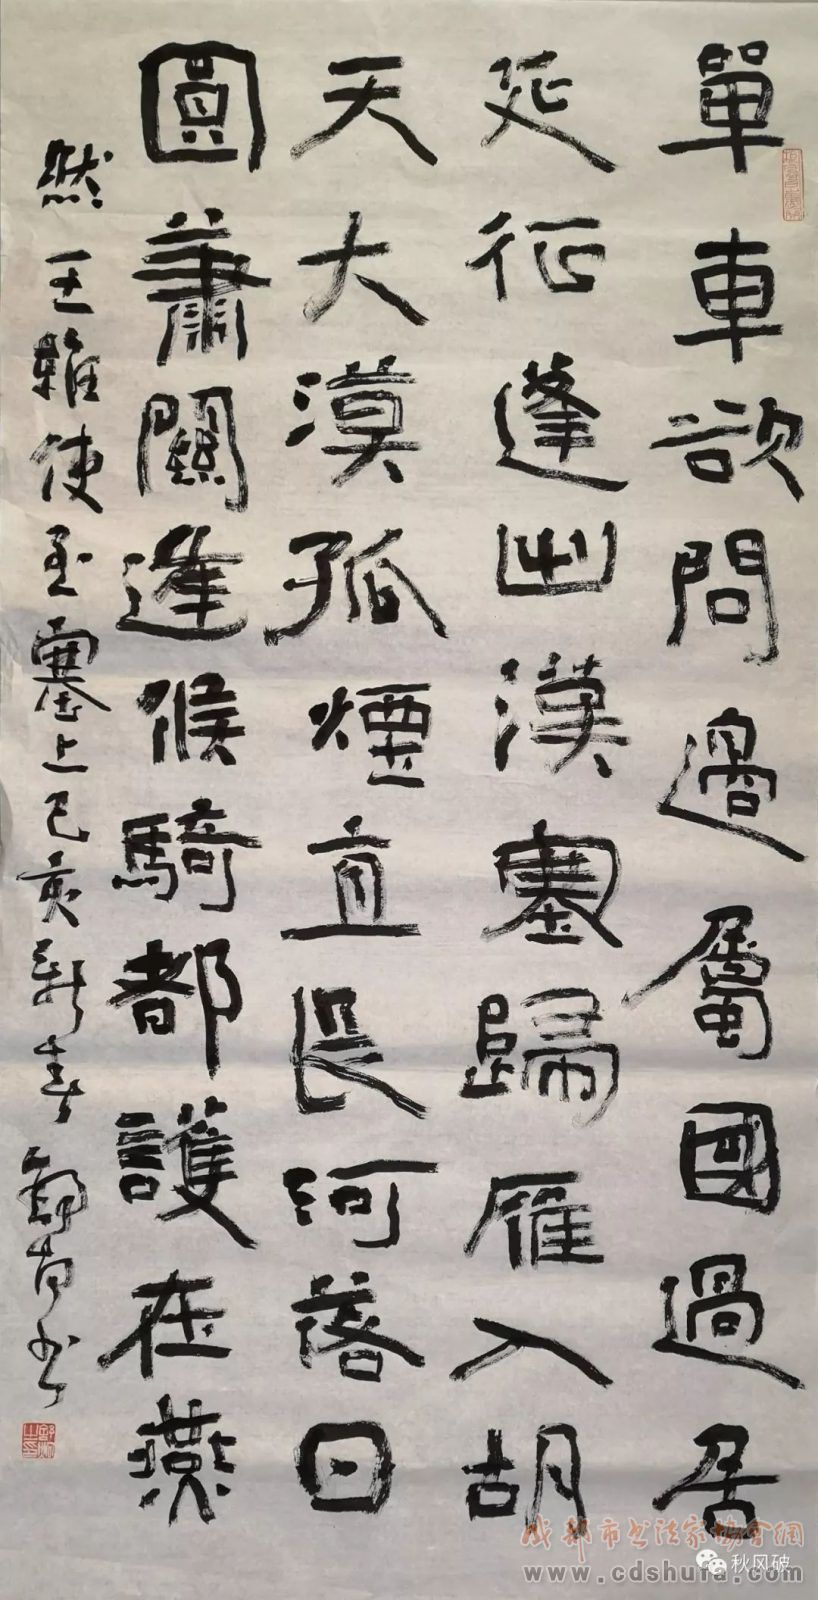 單車欲問邊屬國過居
延征蓬出漢塞歸雁入胡
天大漠孤煙直長河落日
圓蕭關逢候騎都護在燕
然王維使至塞上己亥新春
成都市书法家协会網
www.cdshufa.com
秋风破